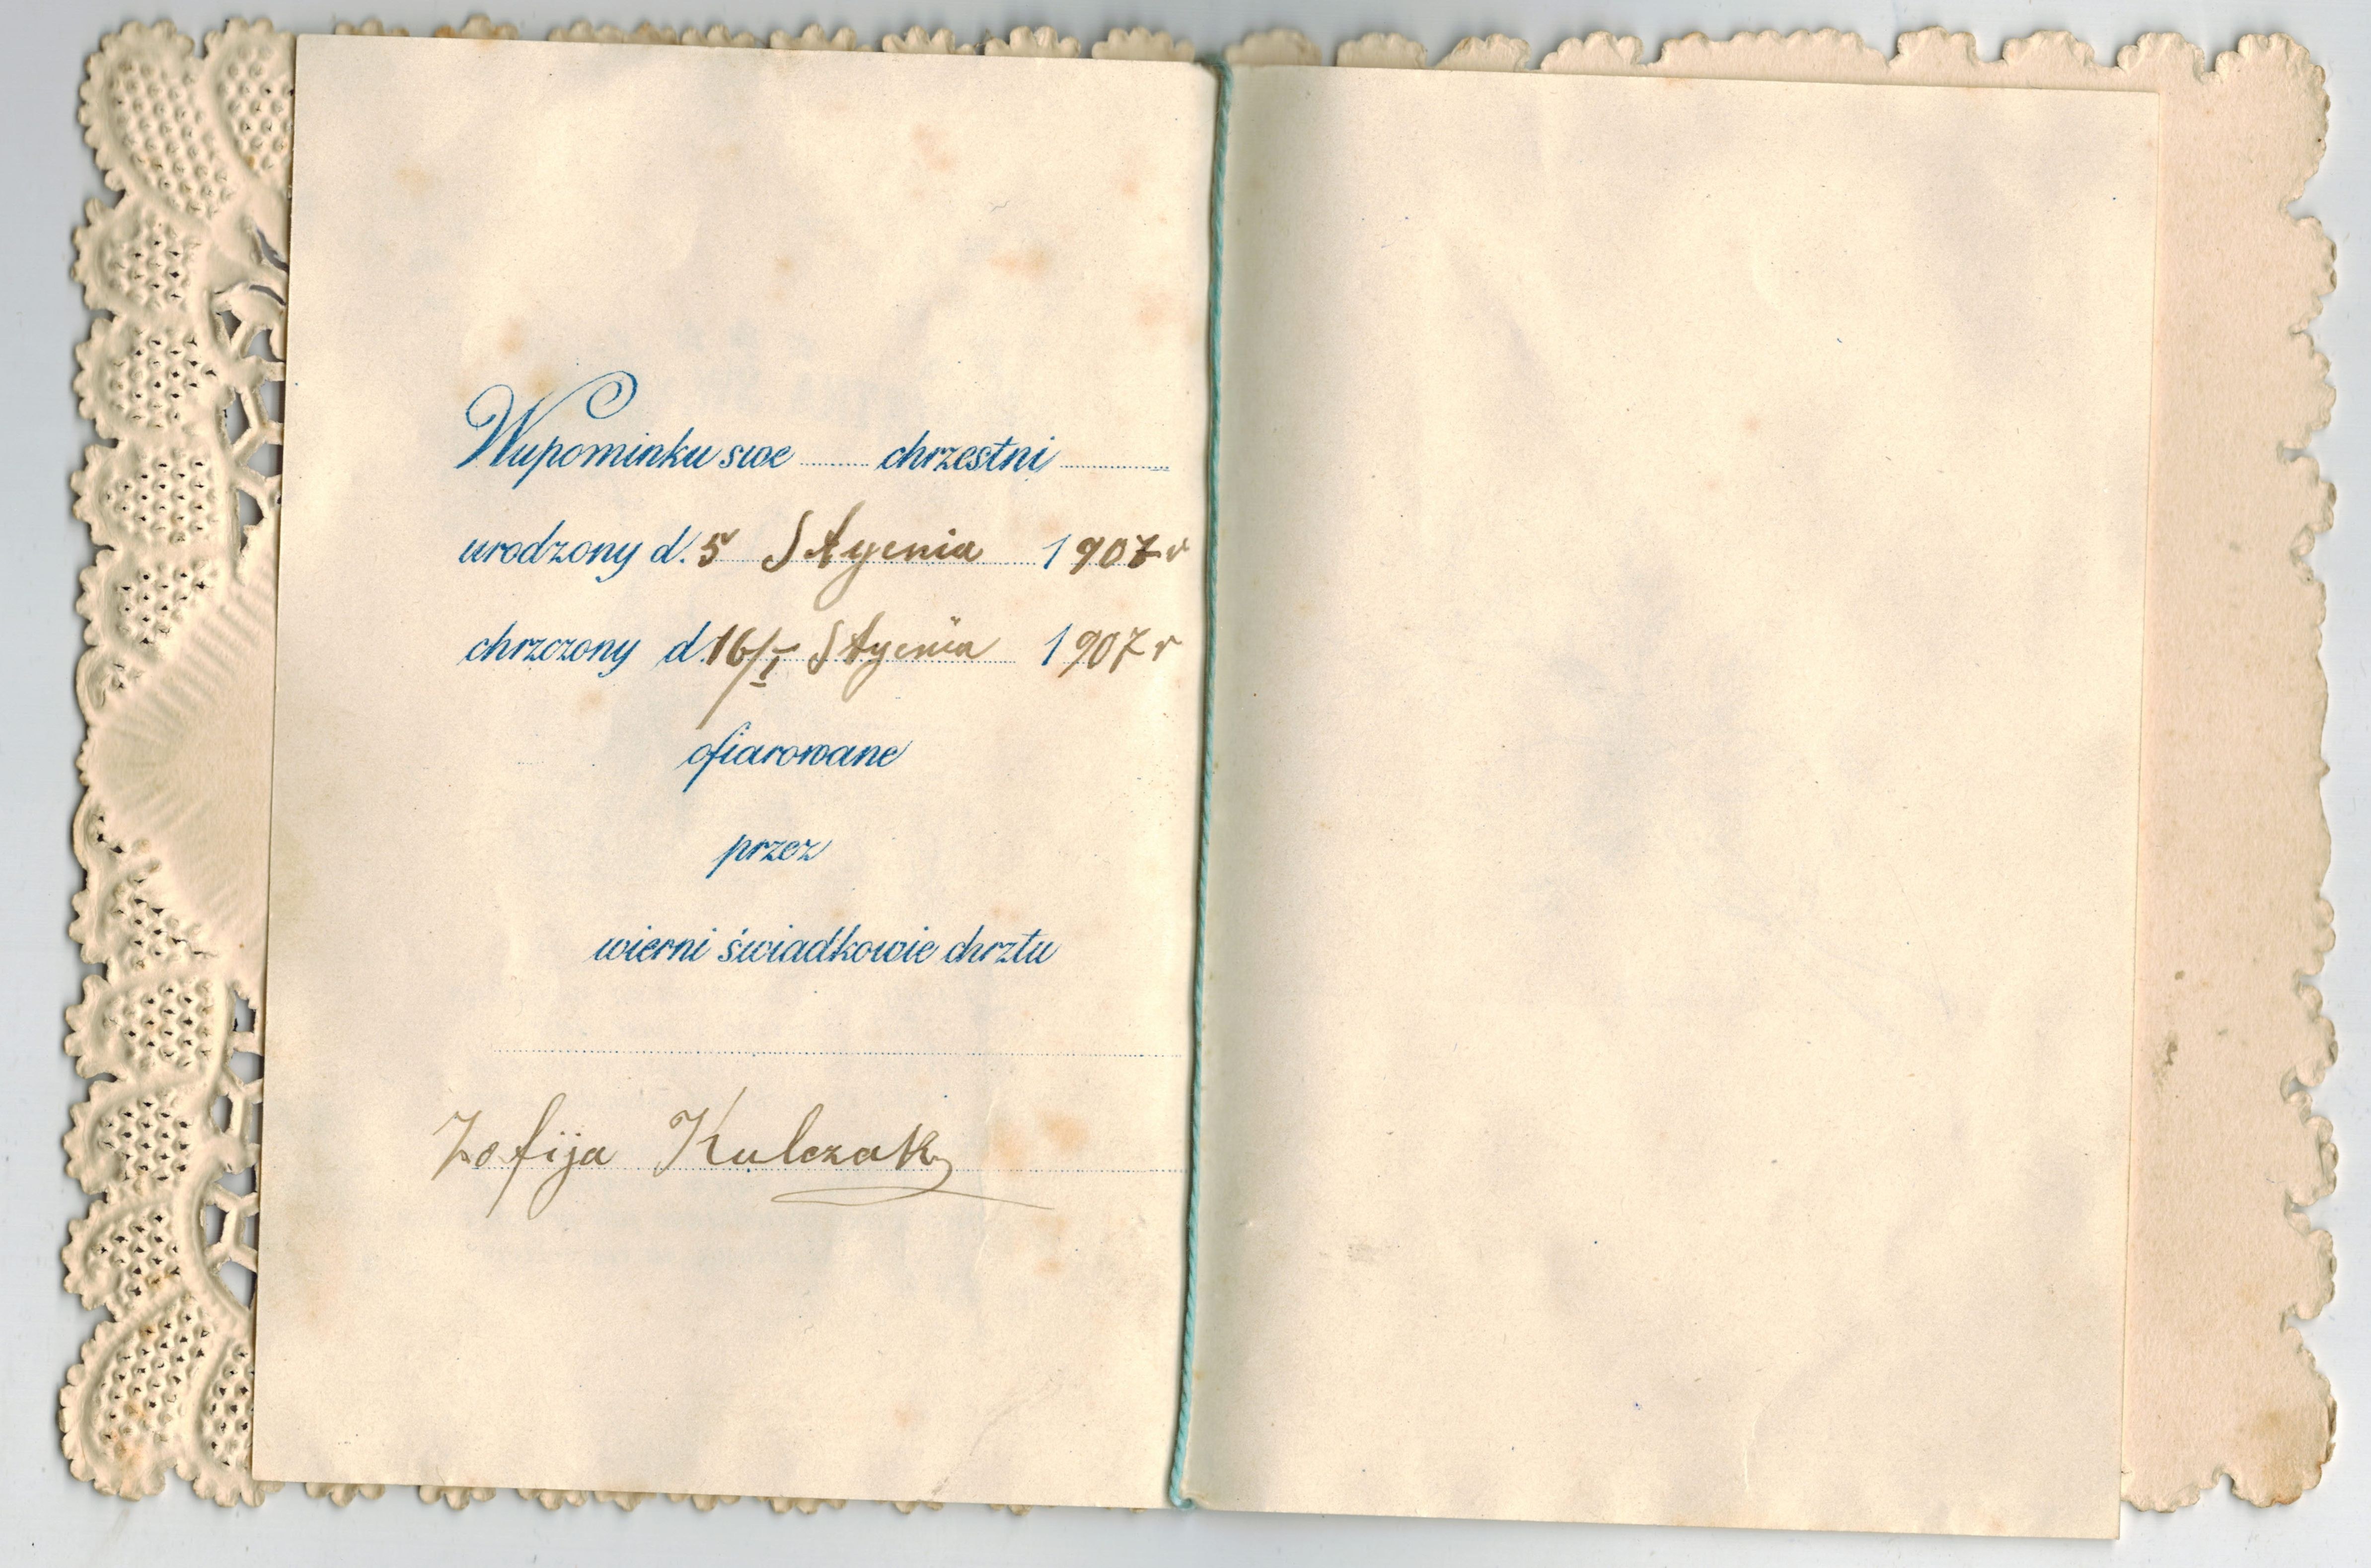 Wupominku swe ........ chrzestni ................
urodzony d. 5 Stycnia 1907 r
chrzczony d. 16/I Stycnia 1907 r
ofiarowane
przez
wierni świadkowie chrztu
Zofija Kulczak